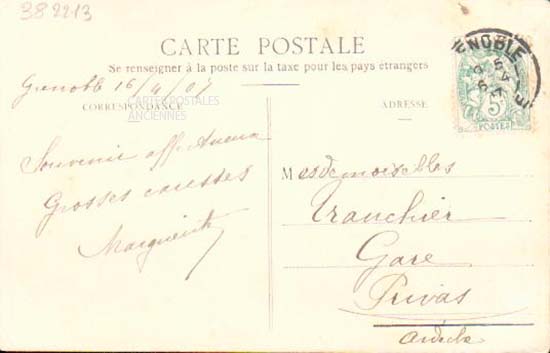 38 2213
CARTE POSTALE
Se renseigner à la poste sur la taxe pour les pays étrangers
Grenoble 16/4/07
CARTES POSTALES
ANCIENNES
CORRESPONDANCE
ADRESSE
Souvenir affectueux
Grosses caresses
Marguerite
Mesdemoiselles
Tranchier
Gare
Privas
Ardèche
GRENOBLE
5c
POSTES